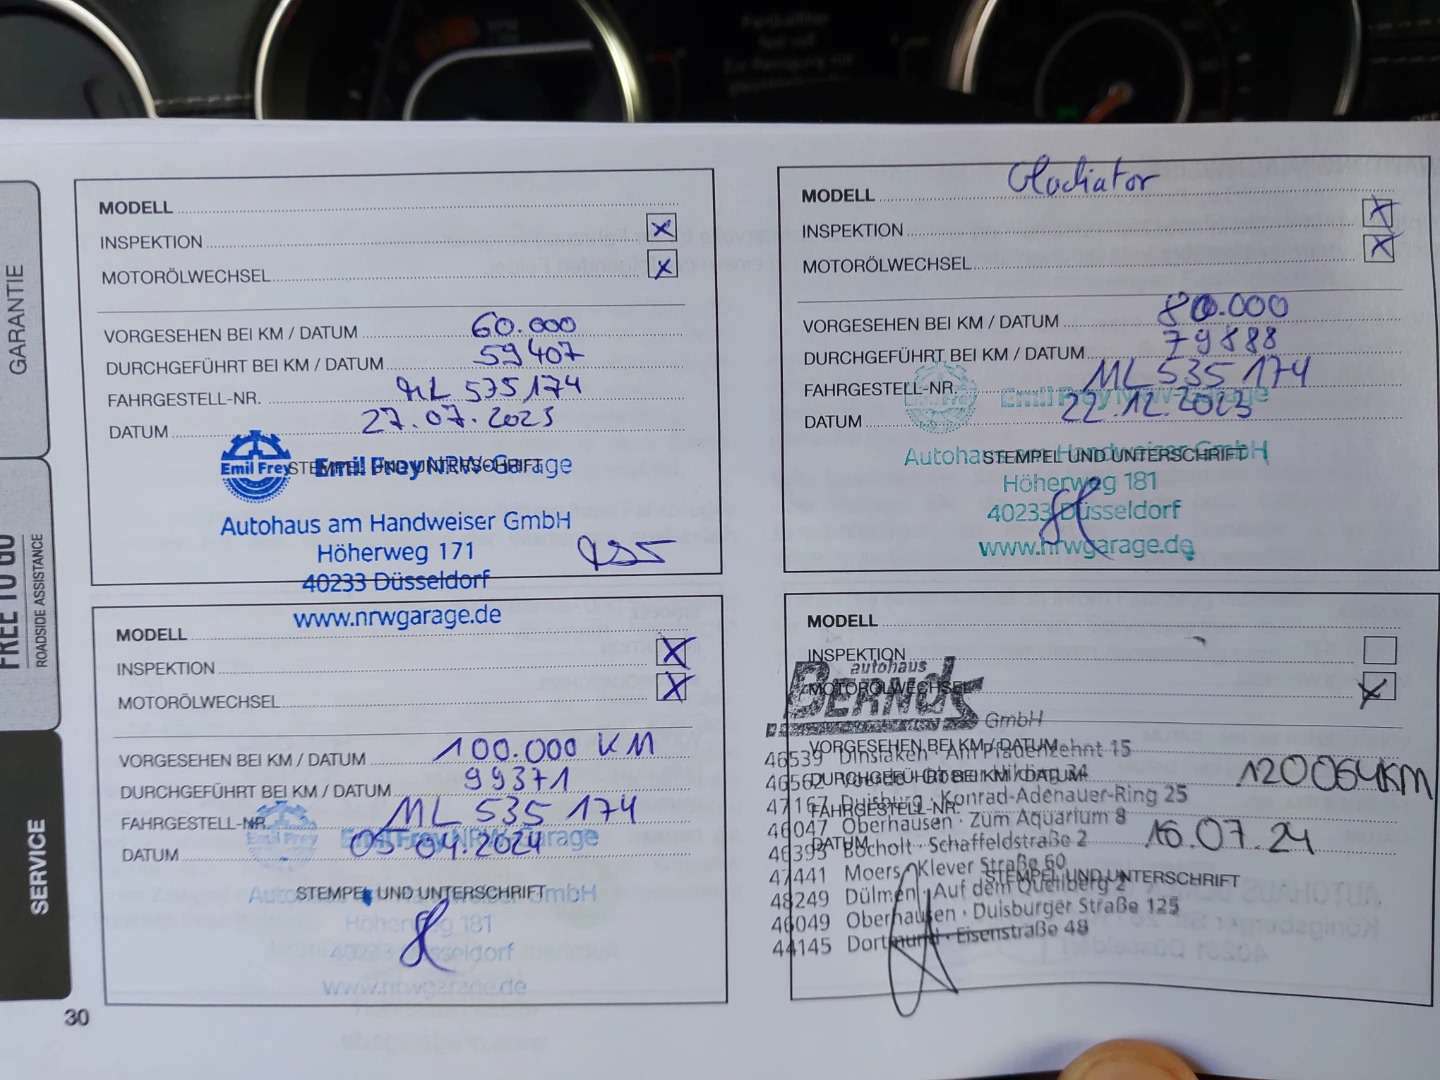 GARANTIE
FREE TO GO
ROADSIDE ASSISTANCE
SERVICE
MODELL
INSPEKTION X
MOTORÖLWECHSEL X
VORGESEHEN BEI KM / DATUM 60.000
DURCHGEFÜHRT BEI KM / DATUM 59407
FAHRGESTELL-NR. ML 535174
DATUM 27.07.2023
STEMPEL UND UNTERSCHRIFT
Emil Frey Emil Frey NRW-Garage
Autohaus am Handweiser GmbH
Höherweg 171
40233 Düsseldorf
www.nrwgarage.de
MODELL Gladiator
INSPEKTION X
MOTORÖLWECHSEL X
VORGESEHEN BEI KM / DATUM 80.000
DURCHGEFÜHRT BEI KM / DATUM 79888
FAHRGESTELL-NR. ML 535 174
DATUM 22.12.2023
Emil Frey NRW-Garage
STEMPEL UND UNTERSCHRIFT
Autohaus am Handweiser GmbH
Höherweg 181
40233 Düsseldorf
www.nrwgarage.de
MODELL
INSPEKTION X
MOTORÖLWECHSEL X
VORGESEHEN BEI KM / DATUM 100.000 KM
DURCHGEFÜHRT BEI KM / DATUM 99371
FAHRGESTELL-NR. ML 535 174
DATUM 05.04.2024
Emil Frey NRW-Garage
STEMPEL UND UNTERSCHRIFT
Autohaus am Handweiser GmbH
Höherweg 181
40233 Düsseldorf
www.nrwgarage.de
MODELL
INSPEKTION
MOTORÖLWECHSEL X
autohaus
BERNDS
GmbH
VORGESEHEN BEI KM / DATUM
46539 Dinslaken · Am Pfauenzehnt 15
DURCHGEFÜHRT BEI KM / DATUM 120064KM
46562 Voerde
47167 Duisburg · Konrad-Adenauer-Ring 25
FAHRGESTELL-NR.
46047 Oberhausen · Zum Aquarium 8
DATUM 16.07.24
46395 Bocholt · Schaffeldstraße 2
47441 Moers · Klever Straße 60
STEMPEL UND UNTERSCHRIFT
48249 Dülmen · Auf dem Quellberg 2
46049 Oberhausen · Duisburger Straße 125
44145 Dortmund · Eisenstraße 48
30